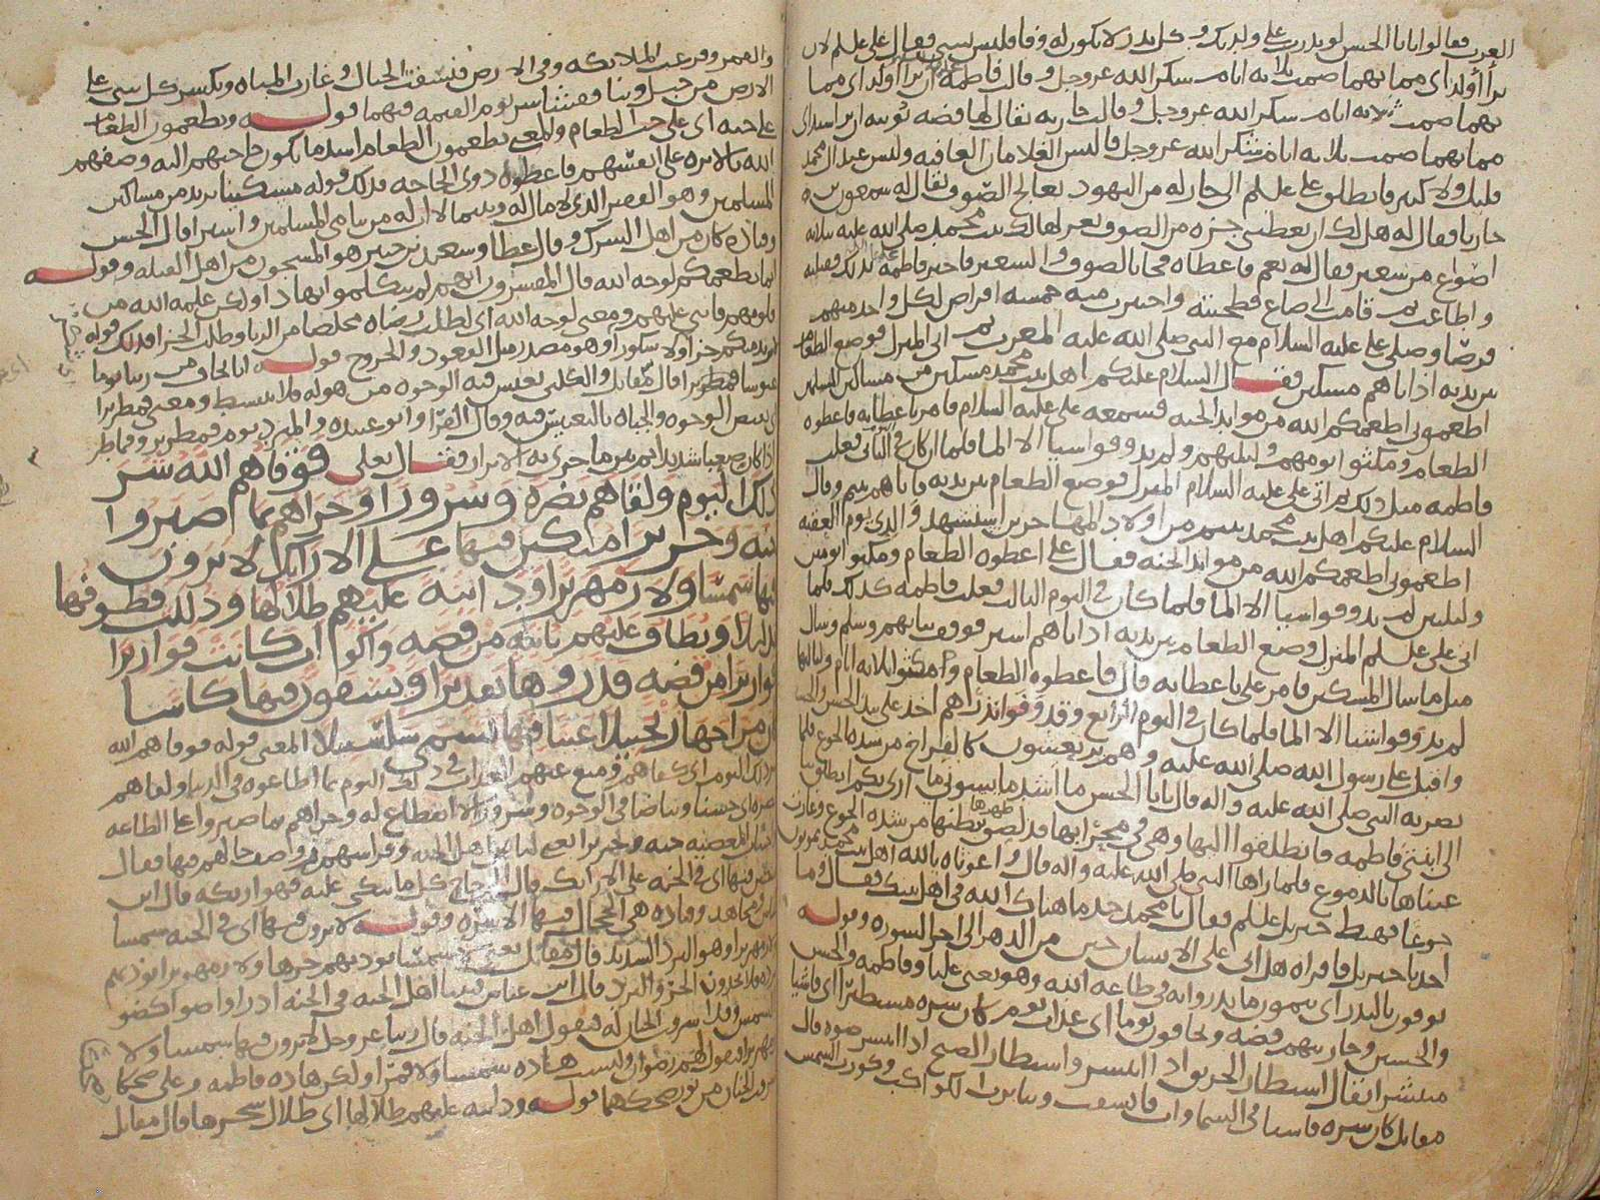 العرب فقالوا يابا الحسن لو نذرت على ولديك وكل نذر لا يكون له وفا فليس بشي فقال على علم لان
برأ أولداى مما بهما صمت ثلاثه ايام شكر الله عز وجل وقالت فاطمة ان برأ اولداى مما
بهما صمت ثلاثه ايام شكر الله عز وجل وقالت جاريه يقال لها فضه نوبيه ان برا سيداى
مما بهما صمت ثلاثه ايام شكر الله عز وجل فالبس الغلامان العافيه وليس عند ال محمد
قليل ولا كثير فانطلق على علم الى جار له من اليهود يعالج الصوف يقال له شمعون بن
حاريا فقال له هل لك ان تعطنى جزه من الصوف تغزلها لك بنت محمد صلى الله عليه بثلاثه
اصواع من شعير فقال له نعم فاعطاه فجا بالصوف والشعير فاخبر فاطمة بذلك فقبلت
واطاعت ثم قامت الى صاع فطحنته واخبزت منه خمسه اقراص لكل واحد منهم
قرصا وصلى على عليه السلام مع النبى صلى الله عليه المغرب ثم اتى المنزل فوضع الطعام
بين يديه اذ اتاهم مسكين فقال السلام عليكم اهل بيت محمد مسكين من مساكين المسلمين
اطعمونى اطعمكم الله من موايد الجنه فسمعه على عليه السلام فامر باعطايه فاعطوه
الطعام ومكثوا يومهم وليلتهم ولم يذوقوا شيا الا الما فلما ان كان فى الثانى فعلت
فاطمه مثل ذلك ثم اتى على عليه السلام المنزل فوضع الطعام بين يديه فاتاهم يتيم وقال
السلام عليكم اهل بيت محمد يتيم من اولاد المهاجرين استشهد والدى يوم العقبه
اطعمونى اطعمكم الله من موايد الجنه فقال على اعطوه الطعام ومكثوا يومين
وليلتين لم يذوقوا شيا الا الما فلما كان فى اليوم الثالث فعلت فاطمه كذلك فلما
اتى على علم المنزل وضع الطعام بين يديه اذ اتاهم اسير فوقف ببابهم وسلم وسال
مثل ما سال المسكين فامر على باعطايه قال فاعطوه الطعام ومكثوا ثلاثه ايام ولياليها
لم يذوقوا شيا الا الما فلما كان فى اليوم الرابع وقد وفوا نذرهم اخذ على بيد الحسن والحسين
واقبل على رسول الله صلى الله عليه وهم يرتعشون كالفراخ من شده الجوع فلما
بصر به النبى صلى الله عليه واله قال يابا الحسن ما اشد ما يسونى ما ارى بكم انطلق بنا
الى ابنتى فاطمه فانطلقوا اليها وهى فى محرابها قد لصق بطنها بظهرها من شده الجوع وغارت
عيناها بالدموع فلما راها النبى صلى الله عليه واله قال واغوثاه بالله اهل بيت محمد يموتون
جوعا فهبط جبريل علم فقال يا محمد خذ ما هناك الله فى اهل بيتك فقال وما
اخذ يا جبريل فاقراه هل اتى على الانسان حين من الدهر الى اخر السوره وقوله
يوفون بالنذر اى يتمون ما نذروا به فى طاعه الله وهو يعنى عليا وفاطمه والحسن
والحسين وجاريتهم فضه ويخافون يوما اى عذاب يوم كان شره مستطيرا اى فاشيا
منتشرا يقال استطار الحريق اذا انتشر واستطار الصبح اذا انتشر ضوه قال
مقاتل كان شره فاشيا فى السماوات فانشقت وتناثرت الكواكب وكورت الشمس
والقمر وفزعت الملائكه وفى الارض فنسفت الجبال وغارت المياه وتكسر كل شى على
الارض من جبل وبنا ففشا شر يوم القيمه فيهما قوله ويطعمون الطعام
على حبه اى على حب الطعام والمعنى يطعمون الطعام اشد ما يكون حاجتهم اليه وصفهم
الله بالاثره على انفسهم فاعطوه ذوى الحاجه فذلك قوله مسكينا يريد من مساكين
المسلمين وهو الفقير الذى لا مال له ويتيما لا اب له من يتامى المسلمين واسيرا قال الحسن
وقتاده كان من اهل الشرك وقال عطا وسعيد بن جبير هو المسجون من اهل القبله وقوله
انما نطعمكم لوجه الله قال المفسرون انهم لم يتكلموا بهذا ولكن علمه الله من
قلوبهم فاثنى عليهم ومعنى لوجه الله اى لطلب رضاه مخلصا من الريا وطلب الجزا فذلك قوله
لا نريد منكم جزا ولا شكورا وهو مصدر مثل القعود والخروج قوله انا نخاف من ربنا يوما
عبوسا قمطريرا قال مقاتل والكلبى تعبس فيه الوجوه من هوله فلا تنبسط ومعنى قمطريرا
اى تقبض الوجوه والجباه بالتعبيس فيه وقال الفرا وابو عبيده والمبرد يوم قمطرير وقماطر
اذا كان صعبا شديدا ثم بين ما جزى به الابرار فقال تعلى فوقاهم الله شر
ذلك اليوم ولقاهم نضرة وسرورا وجزاهم بما صبروا
جنه وحريرا متكين فيها على الارايك لا يرون
فيها شمسا ولا زمهريرا ودانية عليهم ظلالها وذللت قطوفها
تذليلا ويطاف عليهم بانيه من فضه واكواب كانت قواريرا
قواريرا من فضه قدروها تقديرا ويسقون فيها كاسا
كان مزاجها زنجبيلا عينا فيها تسمى سلسبيلا المعنى قوله فوقاهم الله
شر ذلك اليوم اى كفاهم ومنع عنهم العذاب فى ذلك اليوم بما اطاعوه فى الدنيا ولقاهم
نضره اى حسنا وبياضا فى الوجوه وسرورا لا انقطاع له وجزاهم بما صبروا على الطاعه
واجتناب المعصيه جنه وحريرا يعنى لباس اهل الجنه وفراشهم ثم وصف حالهم فيها فقال
متكين فيها اى فى الجنه على الارايك قال الزجاج كل ما يتكى عليه فهو اريكه قال ابن
عباس ومجاهد وقتاده هى الحجال فيها الاسره وقوله لا يرون فيها اى فى الجنه شمسا
ولا زمهريرا وهو البرد الشديد قال مقاتل يعنى لا شمسا يوذيهم حرها ولا زمهريرا يوذيهم
برده فلا يجدون الحر والبرد قال ابن عباس فبينا اهل الجنه فى الجنه اذ راوا ضوا كضو
الشمس وقد اشرقت الجنان له فيقول اهل الجنه قال ربنا عز وجل لا يرون فيها شمسا ولا
زمهريرا فيقول لهم رضوان وليست هذه شمسا ولا قمرا ولكن هذه فاطمه وعلى ضحكا
اشرقت الجنان من نور ضحكهما قوله ودانيه عليهم ظلالها اى ظلال شجرها قال مقاتل